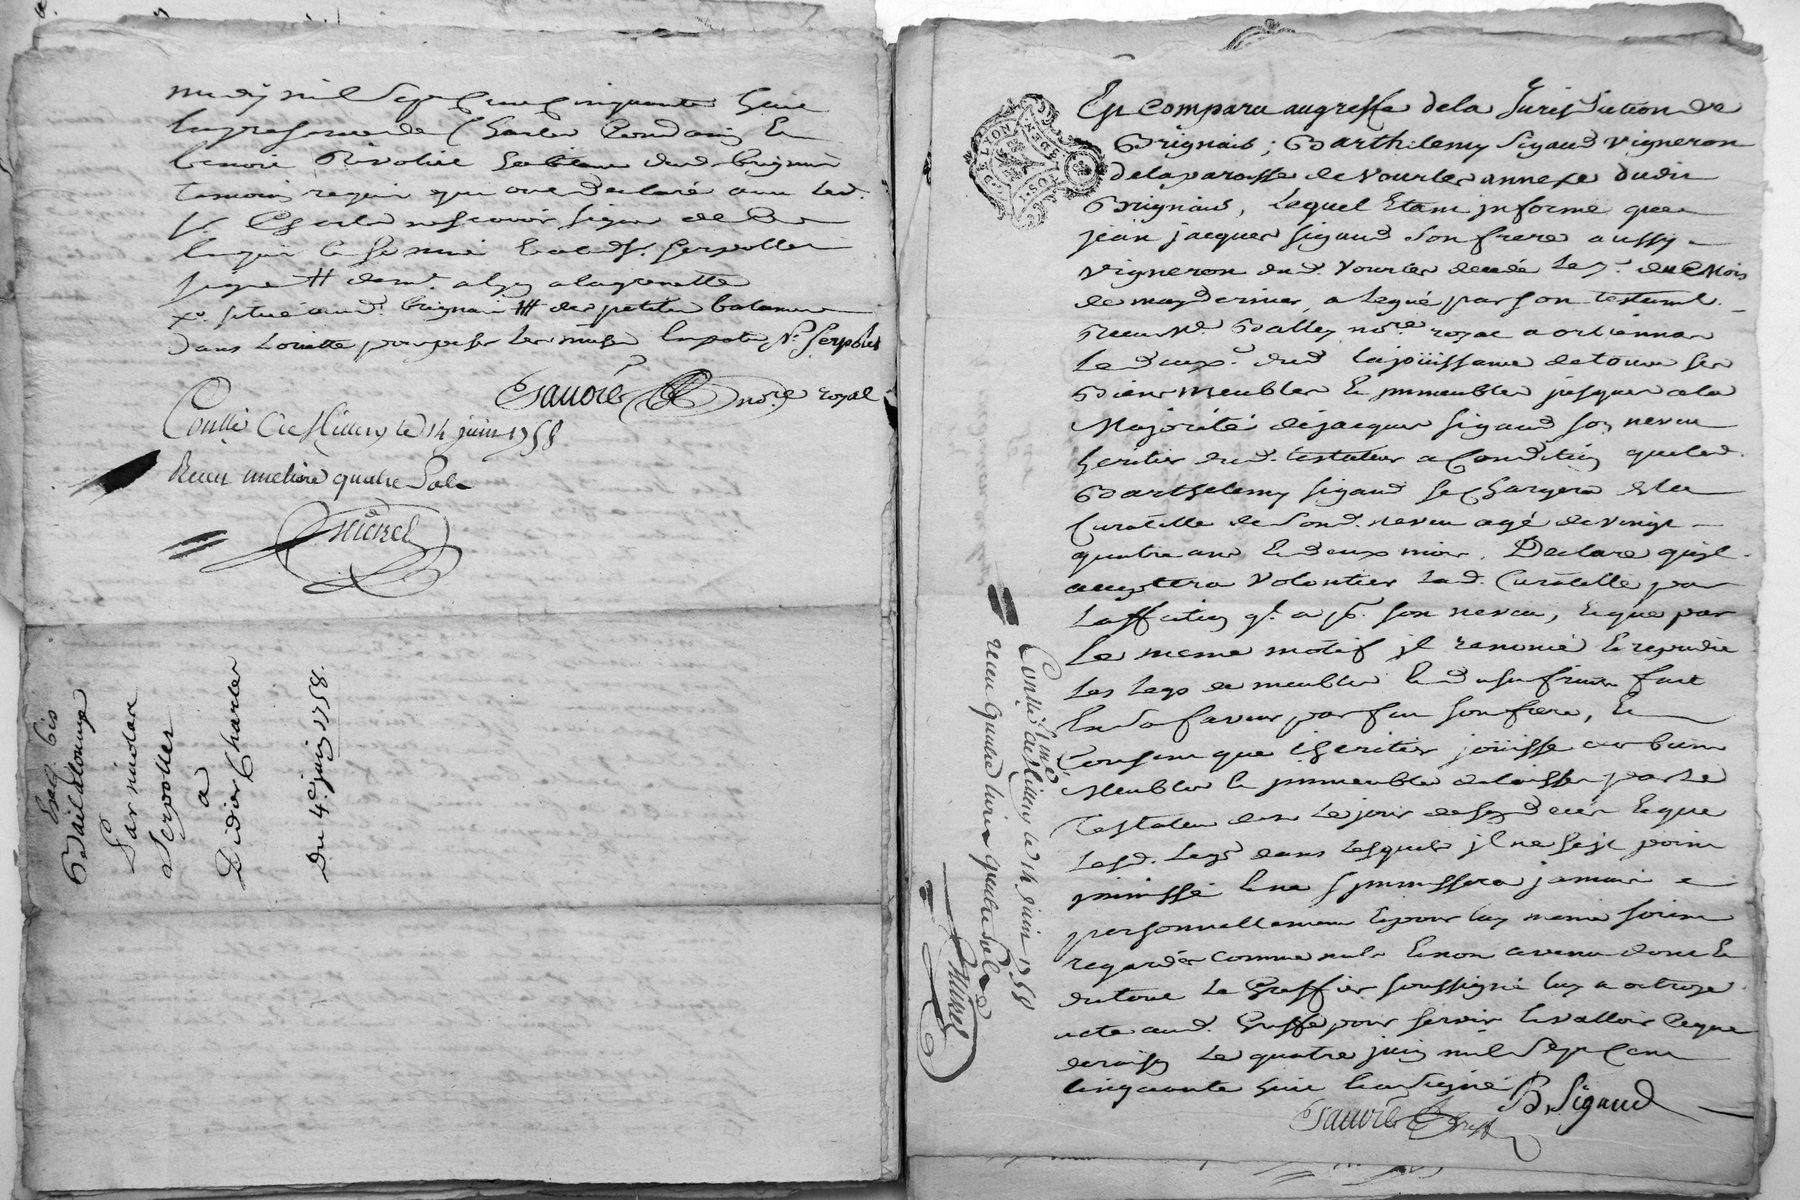 midy mil sept cent cinquante huit
en presence de Charles Condamin et
benoit Rivoire habitans dud. brignais
temoins requis qui ont declaré avec led.
sr. Charles ne scavoir signer de ce
enquis et sommé et led. sr. Serpollet
signé # dem.
situé aud. brignais ## des petites balances
dans Loriette pour peser les
N. Serpollet
Bauvrés no.re royal
Con.llé a St Genis le 14 juin 1758
Recu une livre quatre sols
Michel
bis
Bail à Louage
Par nicolas
Serpollet
a
Didier Charles
Du 4e. juin 1758.
GEN. DE LYON
Est comparu au greffe de la Jurisdiction de
Brignais ; Barthelemy Sigaud vigneron
de la paroisse de Vourles annexe dudit
Brignais, Lequel Etant informé que
jean jacques Sigaud son frere aussy
vigneron dud. Vourles decedé Le du Mois
de may dernier, a Legué par son testament
Recu Me. no.re royal a orlienas
Le deux. dud. la joüissance de tous ses
Biens Meubles et immeubles jusques a la
Majorité de jacques Sigaud son neveu
heritier dud. testateur a Condition que led.
Barthelemy Sigaud se Chargera de la
Curatelle de Sond. neveu agé de vingt
quatre ans et deux mois. Declare qu'il
acceptera Volontier Lad. Curatelle par
Laffection q.l a p.r son neveu, et que par
Le meme motif il renonce et repudie
Les Legs de meubles et d'usufruit fait
En sa faveur par feu son frere, et
Consent que L'heritier joüisse des biens
Meubles et immeubles delaissés par Le
Testateur des Le jour de son deces et que
Lesd. Legs dans Lesquels il ne s'est point
immissé et ne s'immissera jamais
personnellement et pour luy meme soient
regardés comme nuls et non avenu dont et
du tout Le Greffier soussigné luy a octroyé
acte aud. Greffe pour servir et valloir ce que
de raison Le quatre juin mil sept cent
cinquante huit et a signé B. Sigaud
Bauvrés Greff
Con.llé a St Genis le 14 juin 1758
recu quatre livres quatre sols
Michel